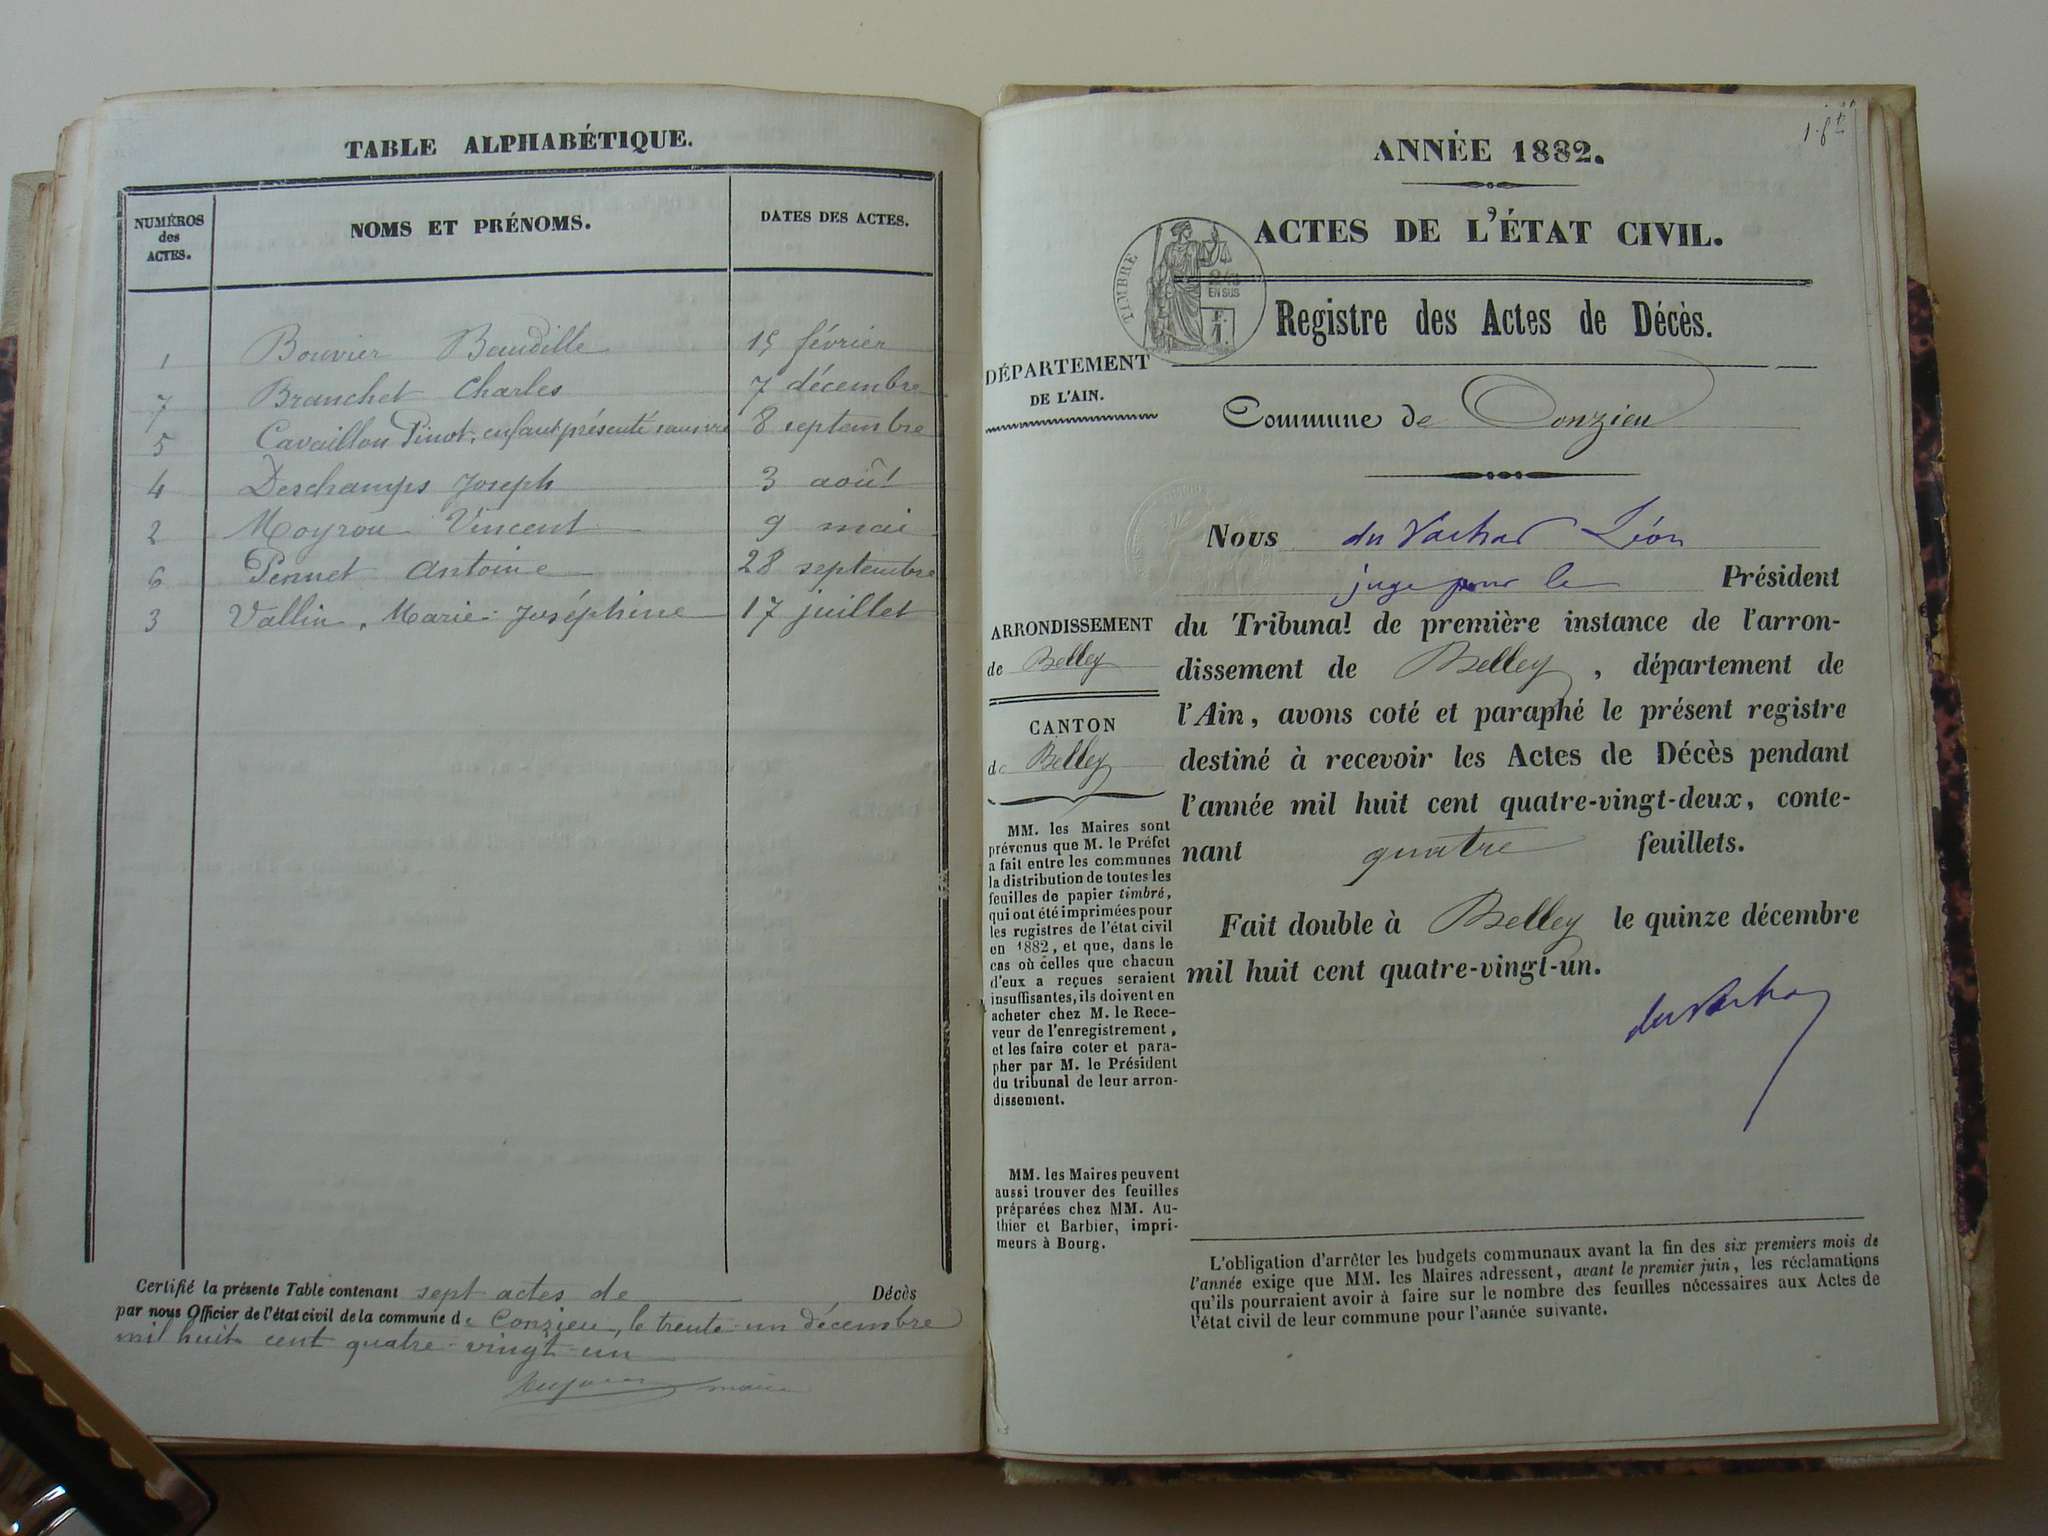 TABLE ALPHABÉTIQUE.
NUMÉROS des ACTES. NOMS ET PRÉNOMS. DATES DES ACTES.
1 Bouvier Baudille 15 février
7 Branchet Charles 7 décembre
5 Cavaillon Pinot, enfant présenté sans vie 8 septembre
4 Deschamps Joseph 3 août
2 Moyrou Vincent 9 mai
6 Pernet Antoine 28 septembre
3 Vallin, Marie-Joséphine 17 juillet
Certifié la présente Table contenant sept actes de Décès
par nous Officier de l'état civil de la commune de Conzieu, le trente-un décembre
mil huit cent quatre-vingt-un
maire
1.
ANNÉE 1882.
ACTES DE L'ÉTAT CIVIL.
TIMBRE
2/10
EN SUS
F.
1.
Registre des Actes de Décès.
DÉPARTEMENT
DE L'AIN.
Commune de Conzieu
Nous du Vachat Léon
juge pour le Président
du Tribunal de première instance de l'arron-
dissement de Belley, département de
l'Ain, avons coté et paraphé le présent registre
destiné à recevoir les Actes de Décès pendant
l'année mil huit cent quatre-vingt-deux, conte-
nant quatre feuillets.
Fait double à Belley le quinze décembre
mil huit cent quatre-vingt-un.
du Vachat
ARRONDISSEMENT
de Belley
CANTON
de Belley
MM. les Maires sont
prévenus que M. le Préfet
a fait entre les communes
la distribution de toutes les
feuilles de papier timbré,
qui ont été imprimées pour
les registres de l'état civil
en 1882, et que, dans le
cas où celles que chacun
d'eux a reçues seraient
insuffisantes, ils doivent en
acheter chez M. le Rece-
veur de l'enregistrement,
et les faire coter et para-
pher par M. le Président
du tribunal de leur arron-
dissement.
MM. les Maires peuvent
aussi trouver des feuilles
préparées chez MM. Au-
thier et Barbier, impri-
meurs à Bourg.
L'obligation d'arrêter les budgets communaux avant la fin des six premiers mois de
l'année exige que MM. les Maires adressent, avant le premier juin, les réclamations
qu'ils pourraient avoir à faire sur le nombre des feuilles nécessaires aux Actes de
l'état civil de leur commune pour l'année suivante.